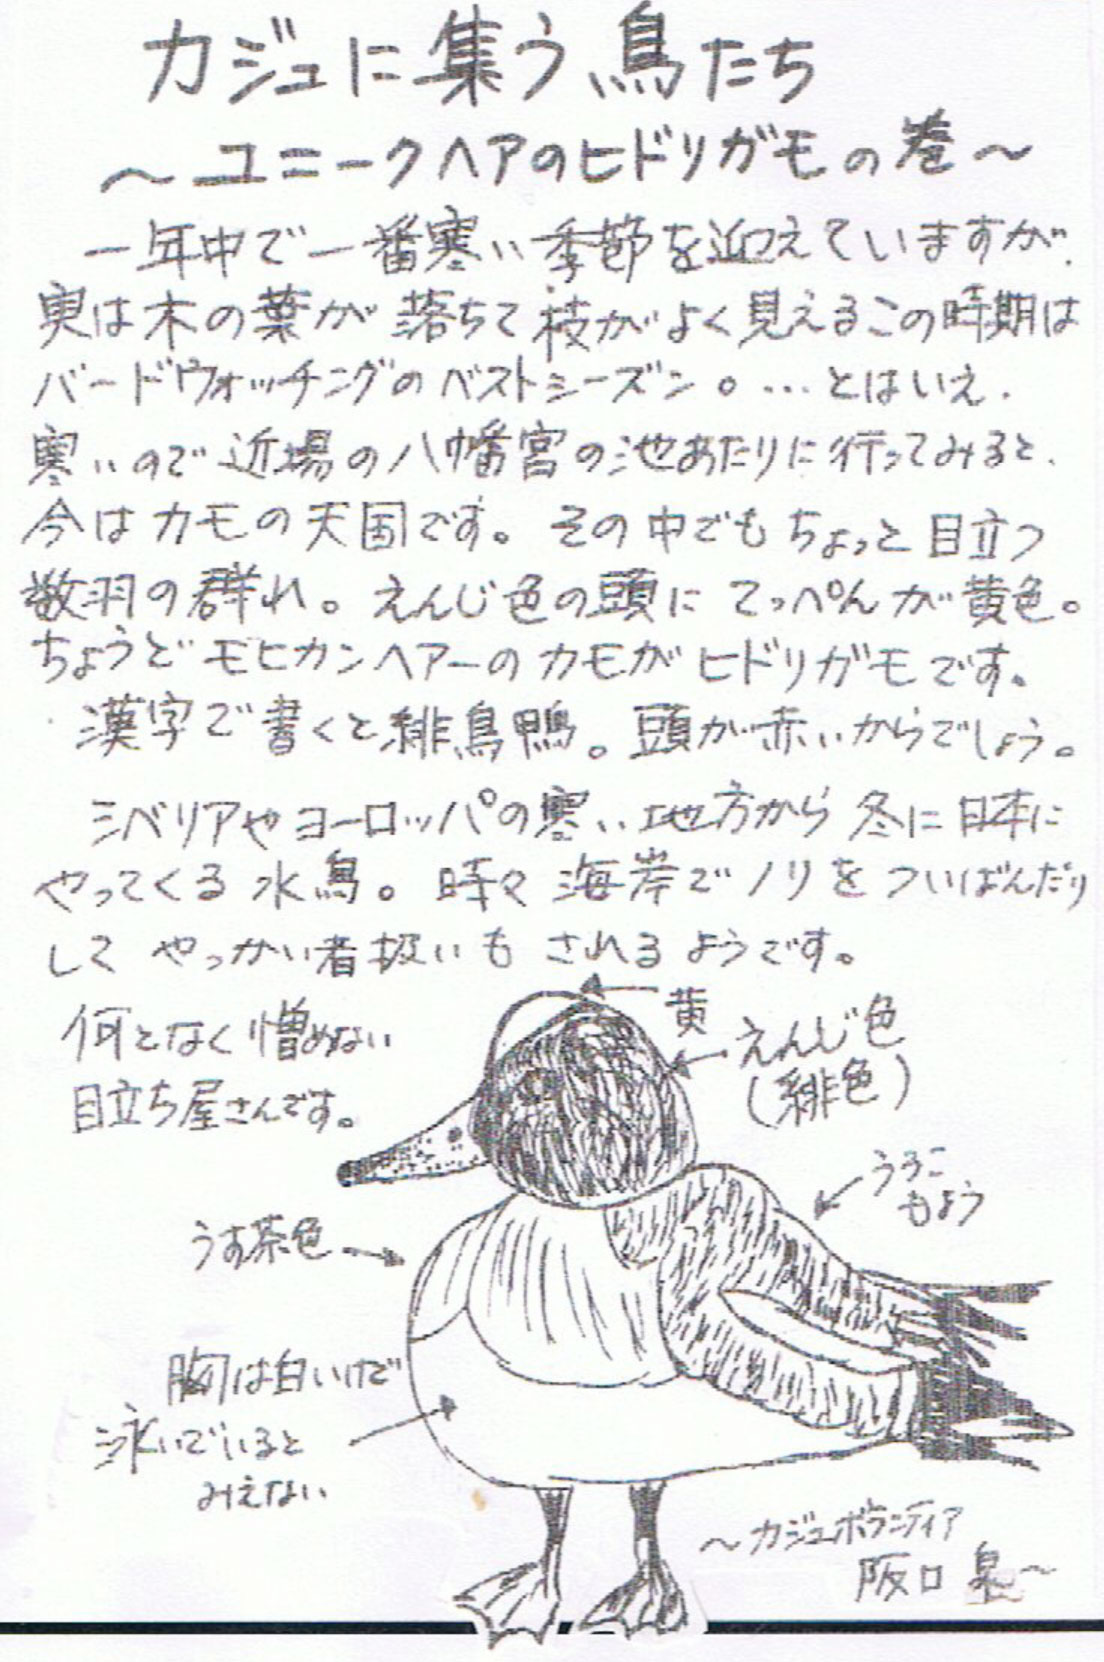 カジュに集う鳥たち
～ユニークヘアのヒドリガモの巻～
一年中で一番寒い季節を迎えていますが、
実は木の葉が落ちて枝がよく見えるこの時期は
バードウォッチングのベストシーズン。…とはいえ、
寒いので近場の八幡宮の池あたりに行ってみると、
今はカモの天国です。その中でもちょっと目立つ
数羽の群れ。えんじ色の頭にてっぺんが黄色。
ちょうどモヒカンヘアーのカモがヒドリガモです。
漢字で書くと緋鳥鴨。頭が赤いからでしょう。
シベリアやヨーロッパの寒い地方から冬に日本に
やってくる水鳥。時々海岸でノリをついばんだり
してやっかい者扱いもされるようです。
何となく憎めない
目立ち屋さんです。
黄
えんじ色
(緋色)
うろこ
もよう
うす茶色
胸は白いけど
泳いでいると
みえない
～カジュボランティア
阪口 泉～